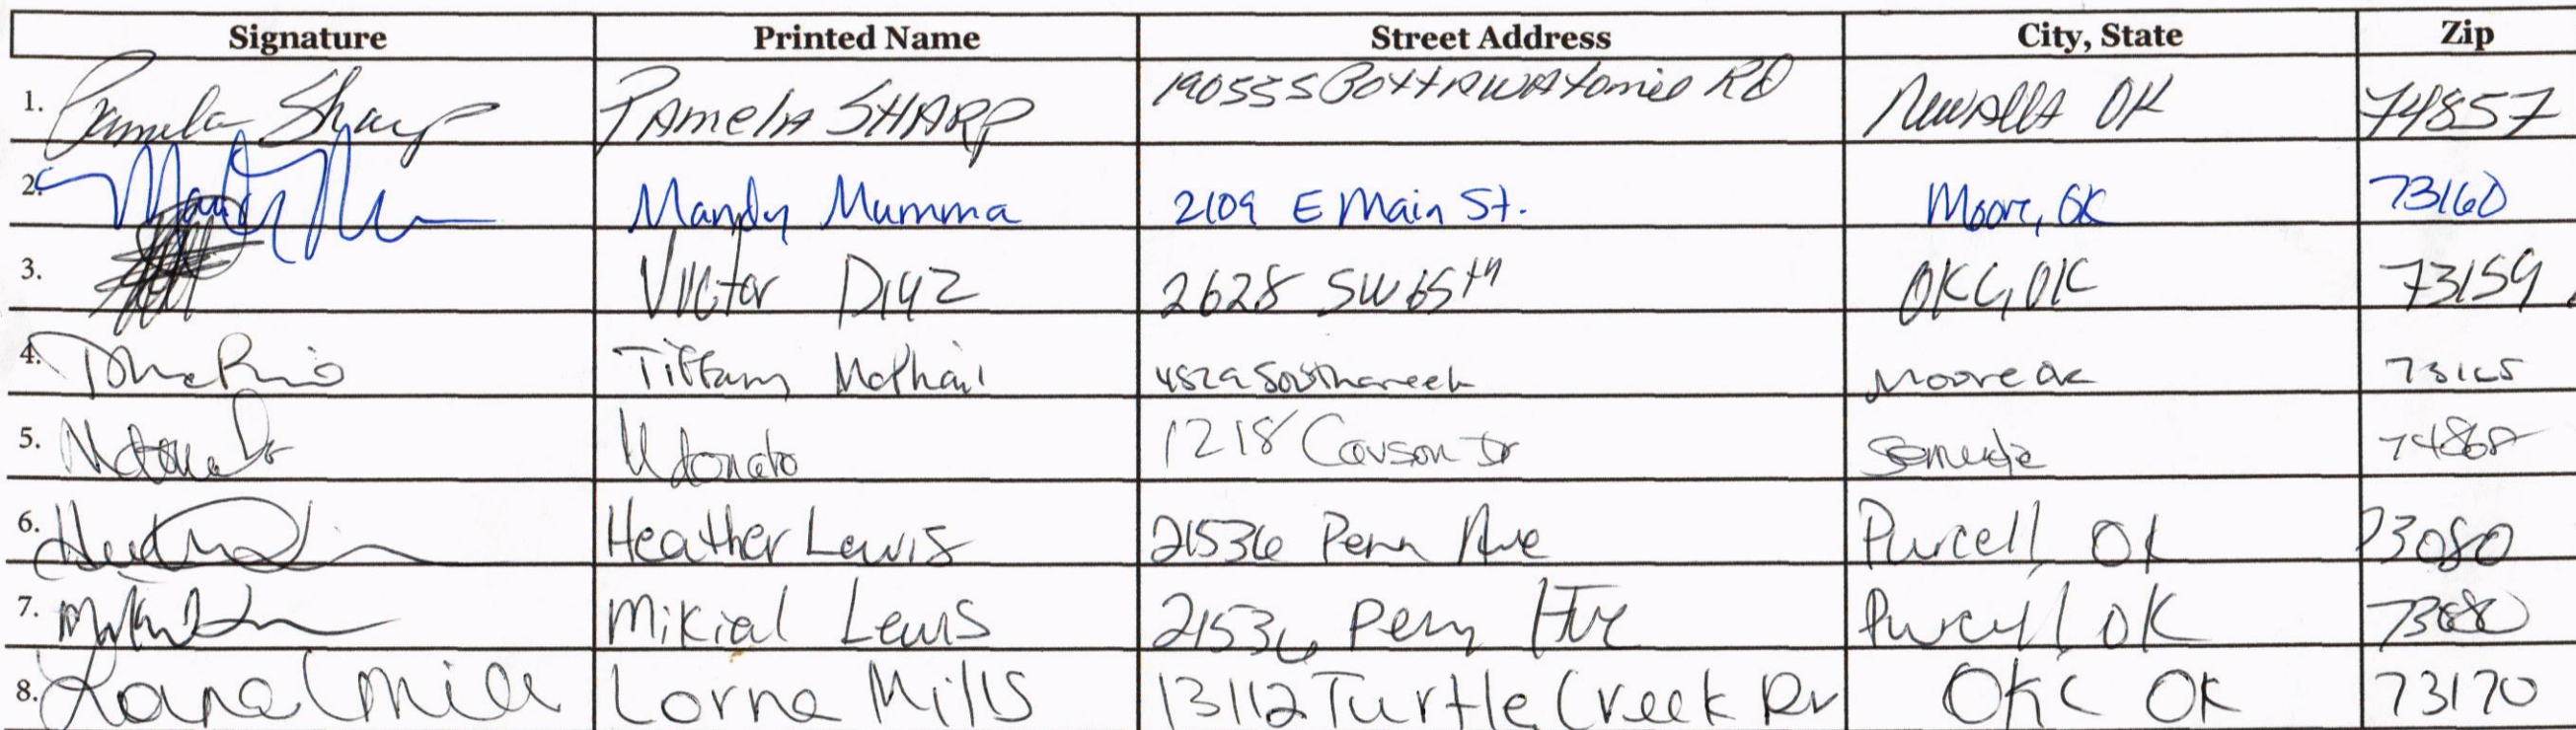 Signature Printed Name Street Address City, State Zip
1. Pamela Sharp PAmelA SHARP RD NewAllA OK 74857
2. Mandy Mumma 2109 E Main St. Moore, OK 73160
3. Victor Diaz 2628 SW 65th OKC, OK 73159
4. Tiffany McPhail Moore OK 73165
5. 1218 Carson Dr 74868
6. Heather Lewis 21536 Penn Ave Purcell OK 73080
7. Mikial Lewis 21536 Penn Ave Purcell OK 73080
8. Lorna Mills 13112 Turtle Creek Dr OKC OK 73170